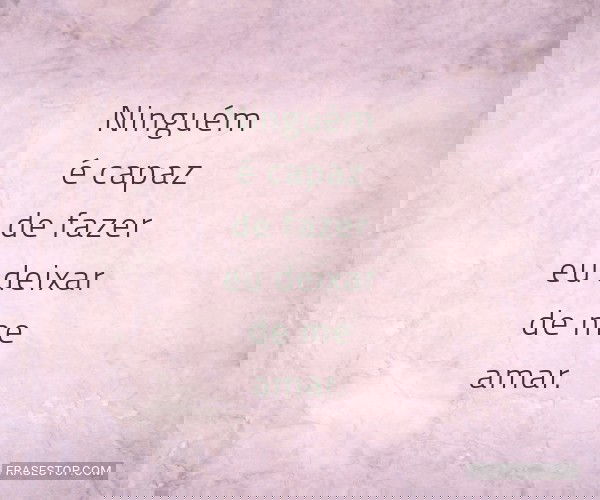 Ninguém
é capaz
de fazer
eu deixar
de me
amar.
FRASESTOP.COM